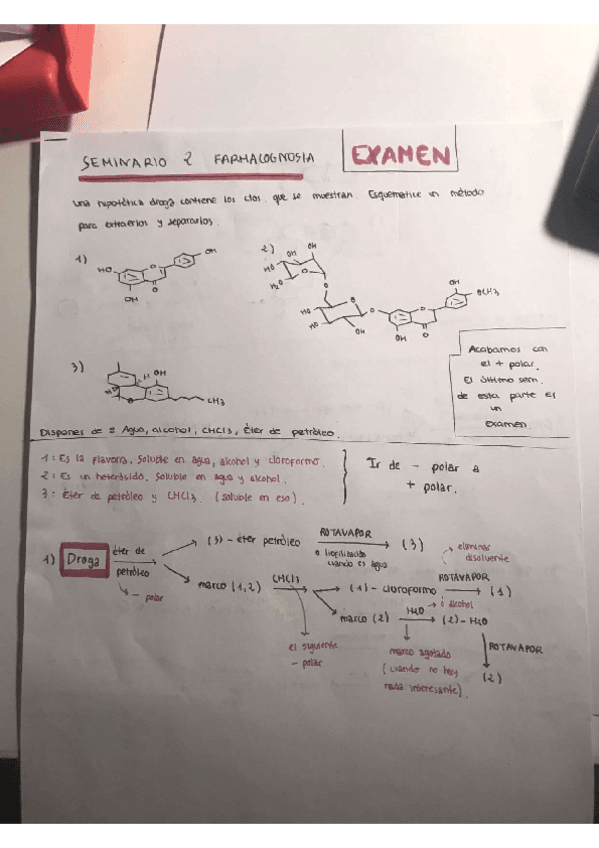 SEMINARIO 2 FARMACOGNOSIA
EXAMEN
Una hipotética droga contiene los ctos. que se muestran. Esquematice un método
para extraerlos y separarlos.
1)
OH
HO
O
OH
O
2)
OH
OH
HO
H3C
O
O
O
HO
HO
OH
O
O
OH
O
OH
OCH3
3)
H
OH
H
O
CH3
Acabamos con
el + polar.
El último sem.
de esta parte es
un
examen.
Dispones de = Agua, alcohol, CHCl3, éter de petróleo.
1: Es la flavona. Soluble en agua, alcohol y cloroformo.
2: Es un heterósido. Soluble en agua y alcohol.
3: Éter de petróleo y CHCl3. (soluble en eso)
Ir de - polar a
+ polar.
1) Droga
éter de
petróleo
- polar
(3) - éter petróleo
ROTAVAPOR
o liofilización
cuando es agua
(3)
eliminar
disolvente
marco (1,2)
CHCl3
(1) - cloroformo
ROTAVAPOR
(1)
el siguiente
- polar
marco (2)
H2O
ó alcohol
(2) - H2O
marco agotado
(cuando no hay
nada interesante)
ROTAVAPOR
(2)